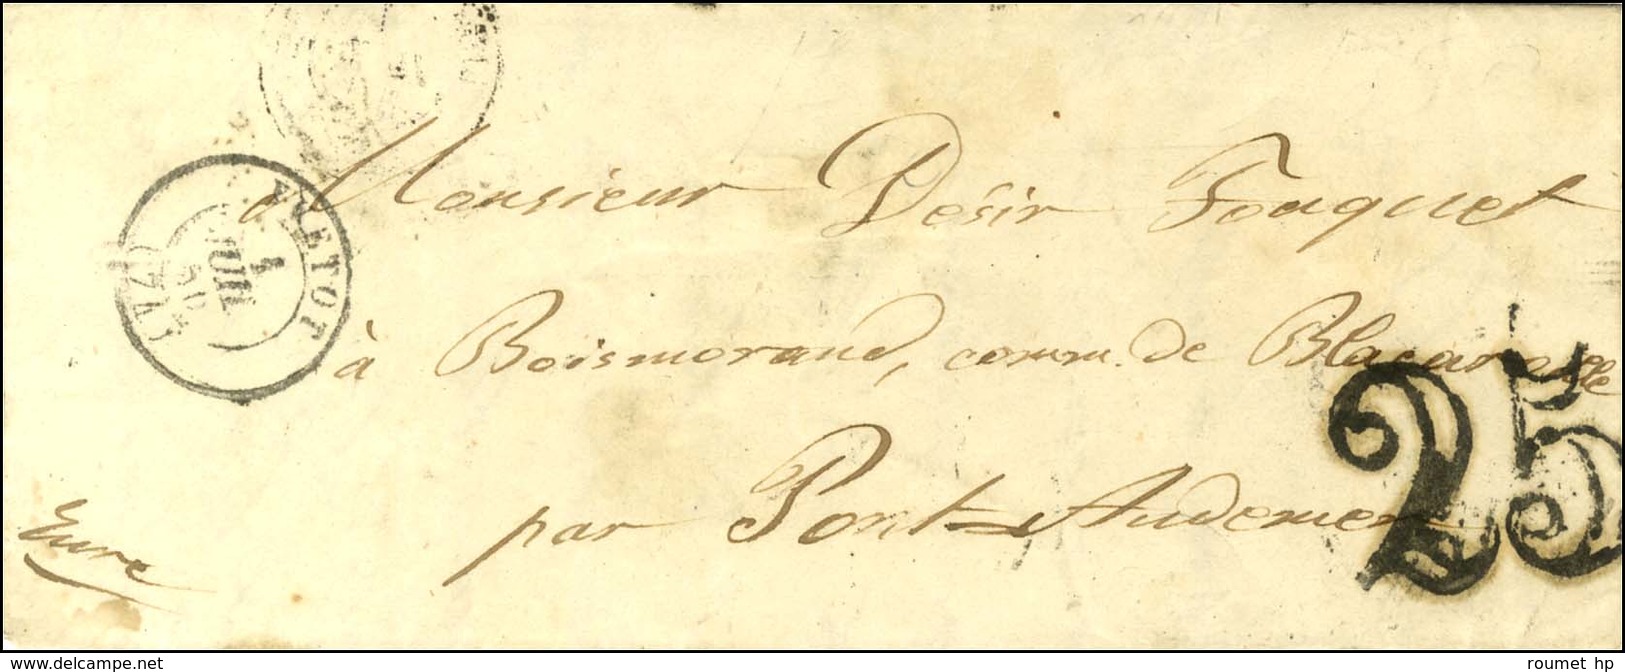 à Monsieur Désir Fouquet
à Boismorand, comm. de
par Pont-Audemer
Eure
YVETOT
1
JUIL
50
(74)
25
www.delcampe.net
roumet hp